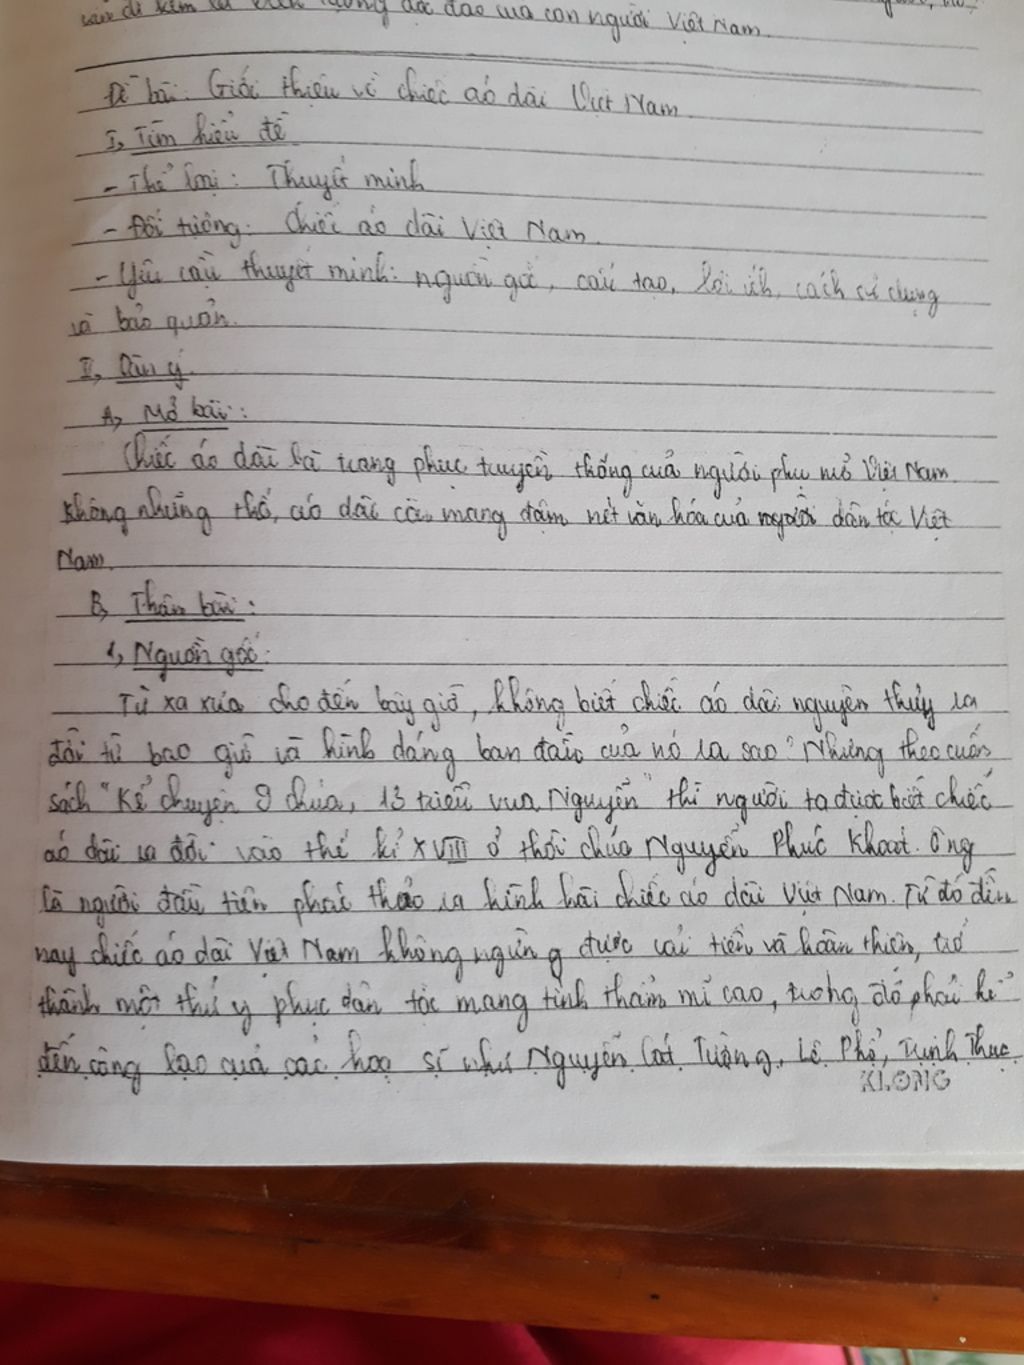 đi kèm là biểu tượng độc đáo của con người Việt Nam.
Đề bài: Giới thiệu về chiếc áo dài Việt Nam.
I, Tìm hiểu đề
- Thể loại: Thuyết minh
- Đối tượng: Chiếc áo dài Việt Nam.
- Yêu cầu thuyết minh: nguồn gốc, cấu tạo, lợi ích, cách sử dụng
và bảo quản.
II, Dàn ý.
A, Mở bài:
Chiếc áo dài là trang phục truyền thống của người phụ nữ Việt Nam.
Không những thế, áo dài còn mang đậm nét văn hóa của người dân tộc Việt
Nam.
B, Thân bài:
1, Nguồn gốc:
Từ xa xưa cho đến bây giờ, không biết chiếc áo dài nguyên thủy ra
đời từ bao giờ và hình dáng ban đầu của nó ra sao? Nhưng theo cuốn
sách "Kể chuyện 9 chúa, 13 triều vua Nguyễn" thì người ta được biết chiếc
áo dài ra đời vào thế kỉ XVIII ở thời chúa Nguyễn Phúc Khoát. Ông
là người đầu tiên phác thảo ra hình hài chiếc áo dài Việt Nam. Từ đó đến
nay chiếc áo dài Việt Nam không ngừng được cải tiến và hoàn thiện, trở
thành một thứ y phục dân tộc mang tính thẩm mĩ cao, trong đó phải kể
đến công lao của các hoạ sĩ như Nguyễn Cát Tường, Lê Phổ, Trịnh Thục
KLONG